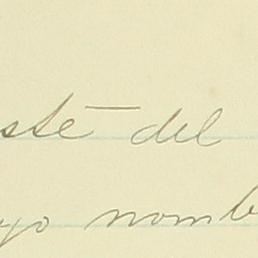 ste del
yo nomb